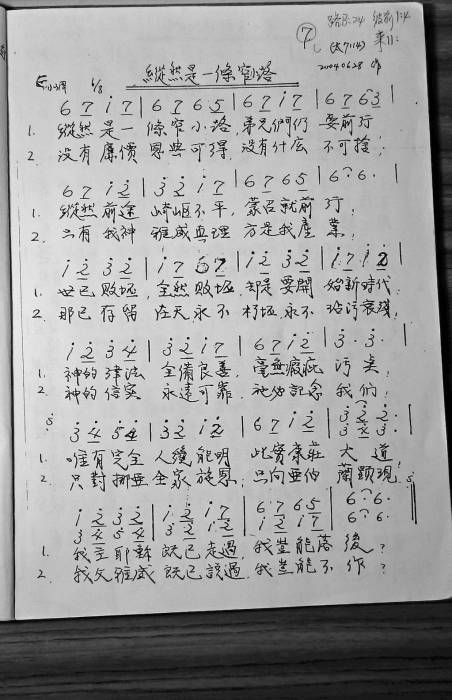 路13:24 彼前1:4
⑦ (太7:14) 來11:
2004 06 28 作
縱然是一條窄路
E小調 6/8
6 7 i 7 | 6 7 6 5 | 6 7 i 7 | 6 7 6 3 |
1. 縱然是一條窄小路, 弟兄們仍要前行,
2. 沒有廉價恩典可得, 沒有什么不可捨;
6 7 i 2 | 3 2 i 7 | 6 7 6 5 | 6· 6· |
1. 縱然前途崎嶇不平, 蒙召就前行;
2. 只有我神雅威真理方是我產業;
i 2 3 2 | i 7 6 7 | i 2 3 2 | i 7 i 2 |
1. 世已敗坏, 全然敗坏, 却是要開始新時代;
2. 那已存留在天, 永不朽坏, 永不玷污衰殘,
i 2 3 4 | 3 2 i 7 | 6 7 i 2 | 3· 3· |
1. 神的律法全備良善, 毫無瑕疵污点,
2. 神的信实永遠可靠, 祂必記念我們;
3 4 5 4 | 3 2 i 2 | 6 7 i 2 |
1. 唯有完全人纔能明此實康莊大道,
2. 只對挪亞全家施恩, 只向亞伯蘭顯現,
i 2 3 2 | i 2 i 7 | 6 7 6 5 | 6· 6·
3 4 5 4
1. 我主耶穌既已走過, 我豈能落後?
2. 我父雅威既已說過, 我豈能不作?